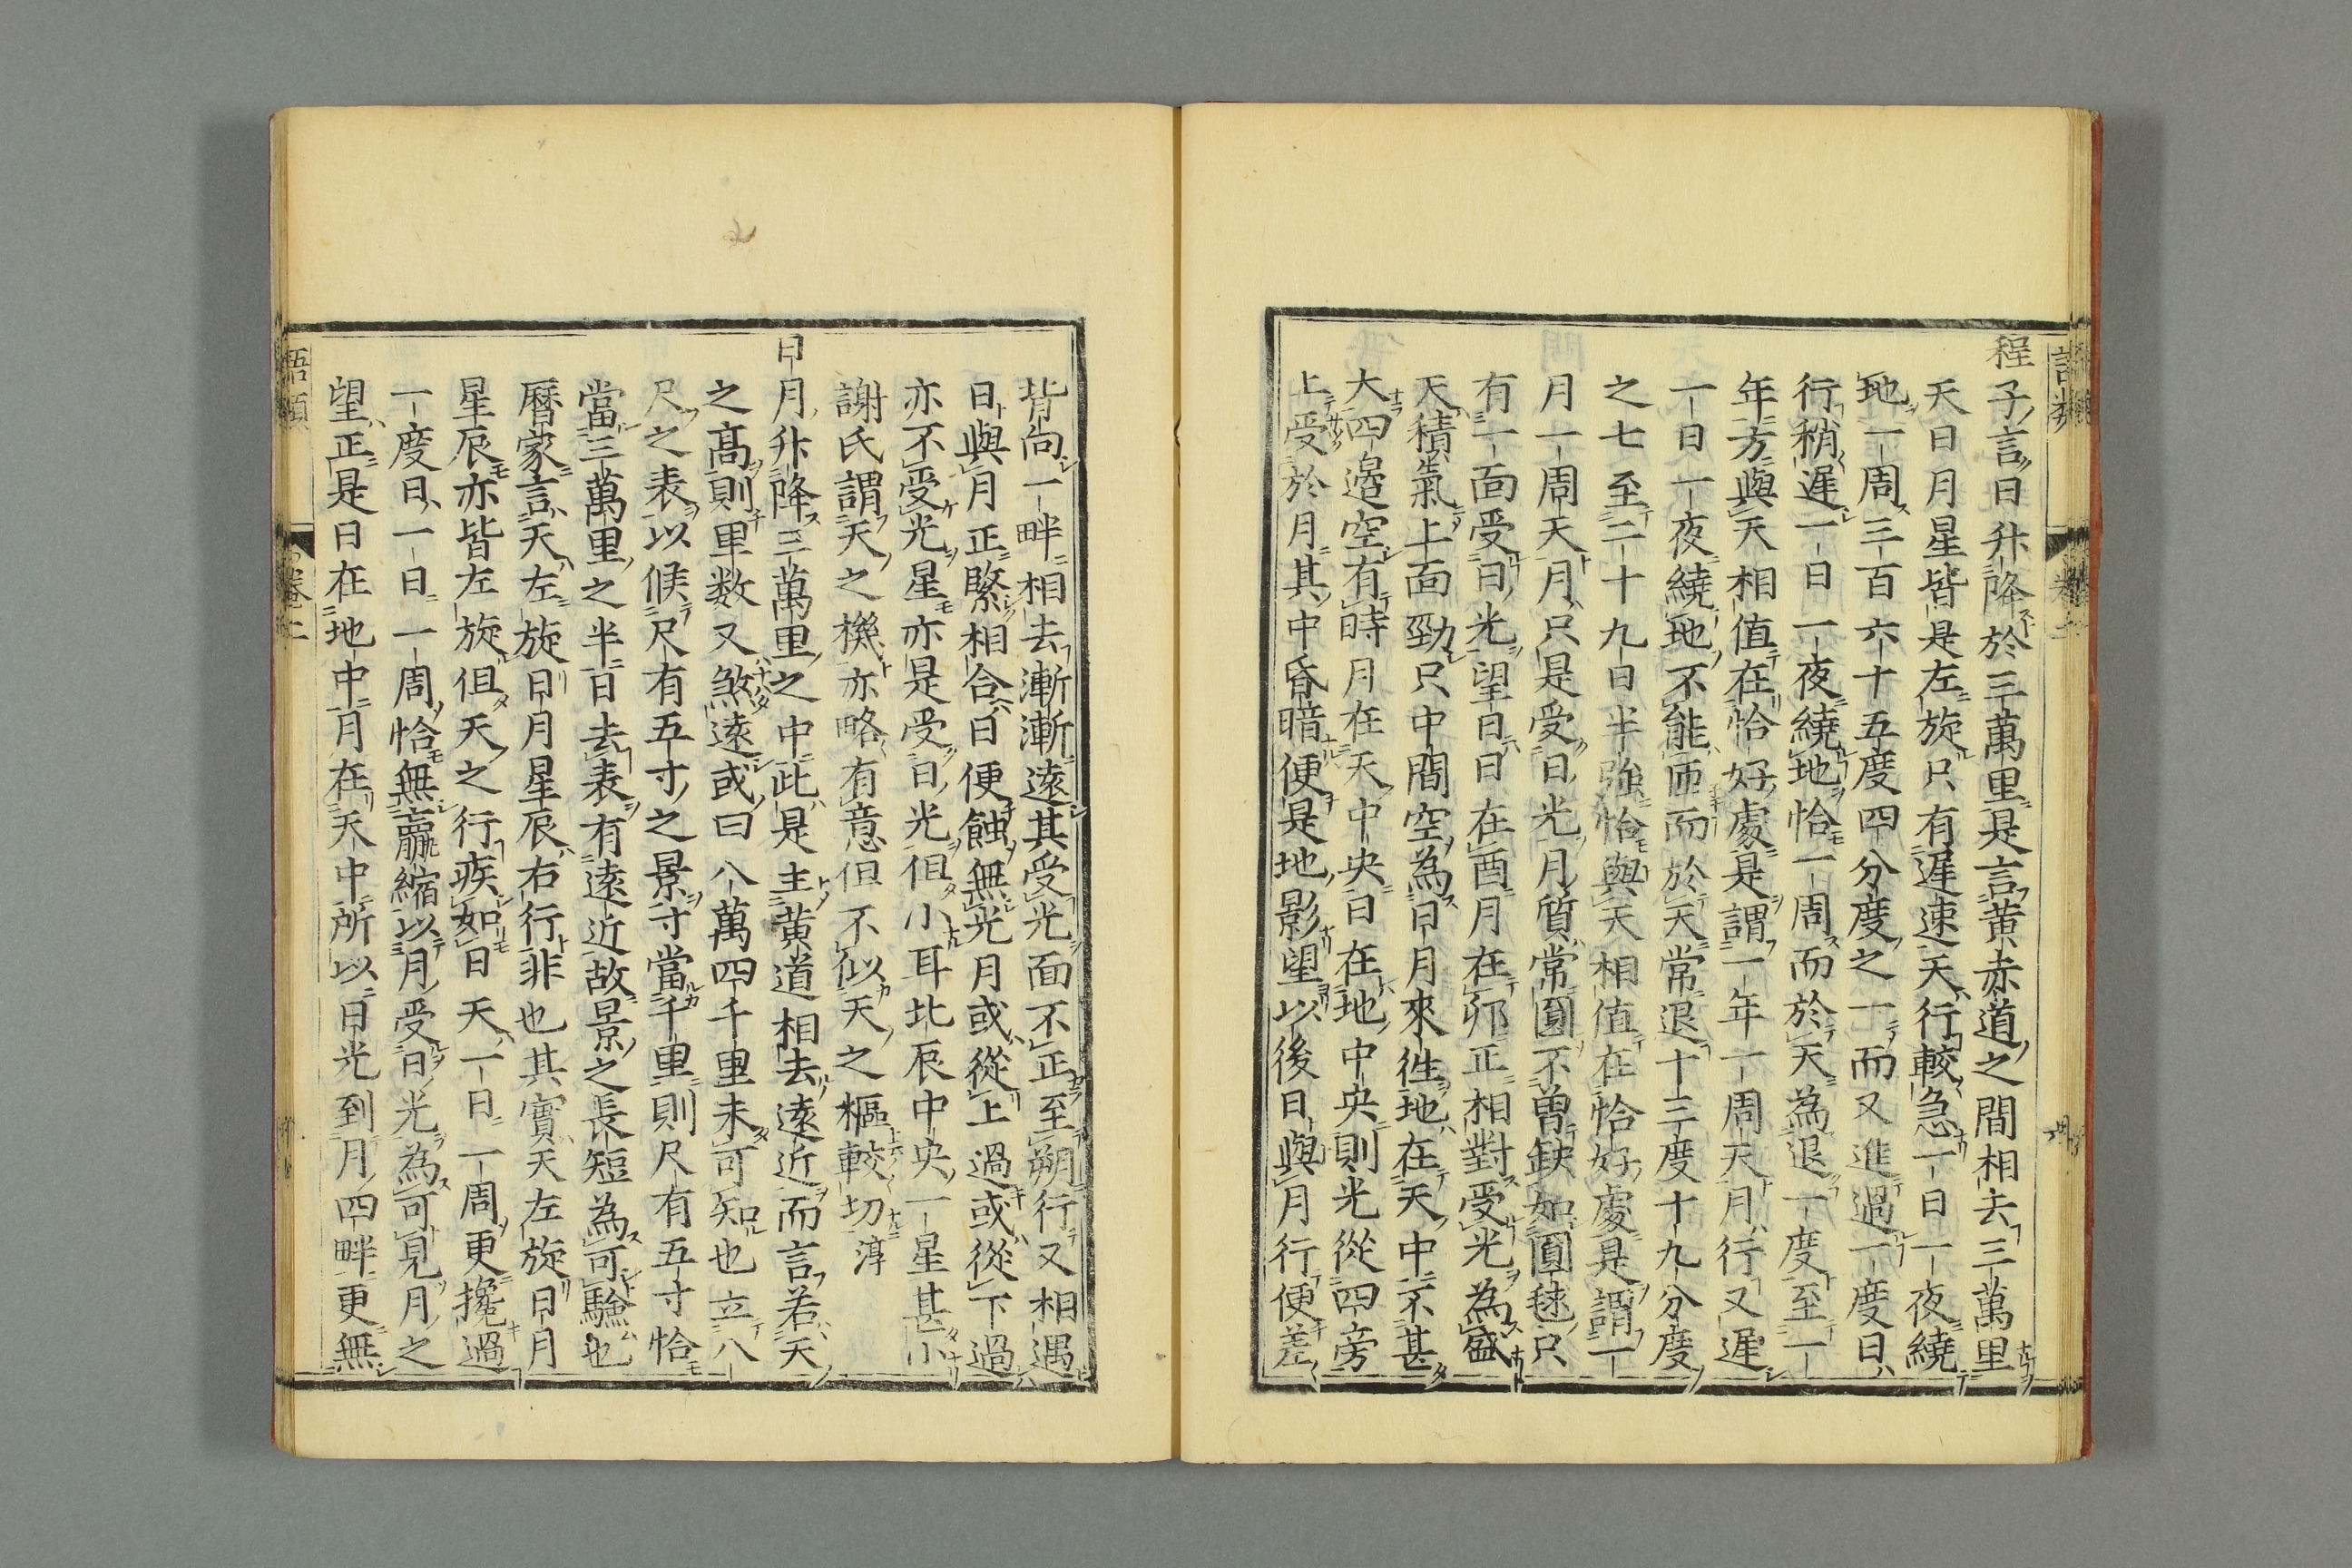 語類 卷二
程子言日升降於三萬里是言黄赤道之間相去三萬里
天日月星皆是左旋只有遲速天行較急一日一夜繞
地一周三百六十五度四分度之一而又進過一度日
行稍遲一日一夜繞地恰一周而於天為退一度至一
年方與天相值在恰好處是謂一年一周天月行又遲
一日一夜繞地不能匝而於天常退十三度十九分度
之七至二十九日半強恰與天相值在恰好處是謂一
月一周天月只是受日光月質常圓不曽缺如圓毬只
有一面受日光望日日在酉月在卯正相對受光為盛
天積氣上面勁只中間空為日月來往地在天中不甚
大四邉空有時月在天中央日在地中央則光從四旁
上受於月其中昏暗便是地影望以後日與月行便差
背向一畔相去漸漸遠其受光面不正至朔行又相遇
日與月正緊相合日便蝕無光月或從上過或從下過
亦不受光星亦是受日光但小耳北辰中央一星甚小
謝氏謂天之機亦略有意但不似天之樞較切淳
日月升降三萬里之中此是主黄道相去遠近而言若天
之高則里数又煞遠或曰八萬四千里未可知也立八
尺之表以候尺有五寸之景寸當千里則尺有五寸恰
當三萬里之半日去表有遠近故景之長短為可驗也
曆家言天左旋日月星辰右行非也其實天左旋日月
星辰亦皆左旋但天之行疾如日天一日一周更攙過
一度日一日一周恰無贏縮以月受日光為可見月之
望正是日在地中月在天中所以日光到月四畔更無
語類 卷二